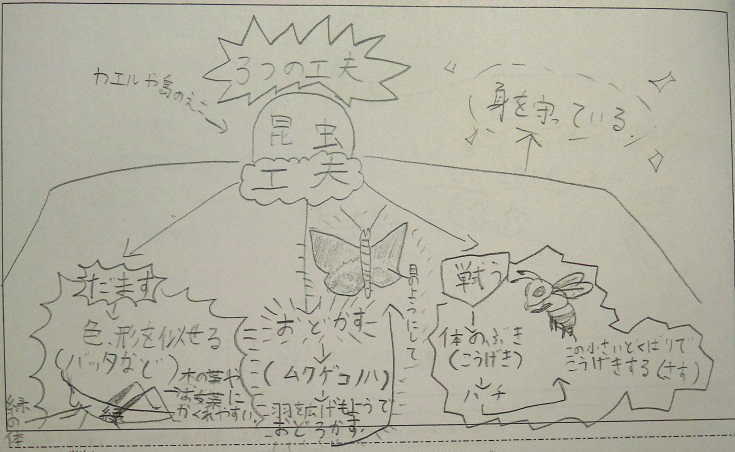 3つの工夫
カエルや鳥のえさ
昆虫
工夫
身を守っている。
だます
色、形を似せる
(バッタなど)
木の葉や
かくれやすい。
緑
緑の体
おどかす
(ムクゲコノハ)
羽を広げもようで
おどろかす。
目のようにして
戦う
体のぶき
(こうげき)
ハチ
この小さいとくばりで
こうげきする(さす)